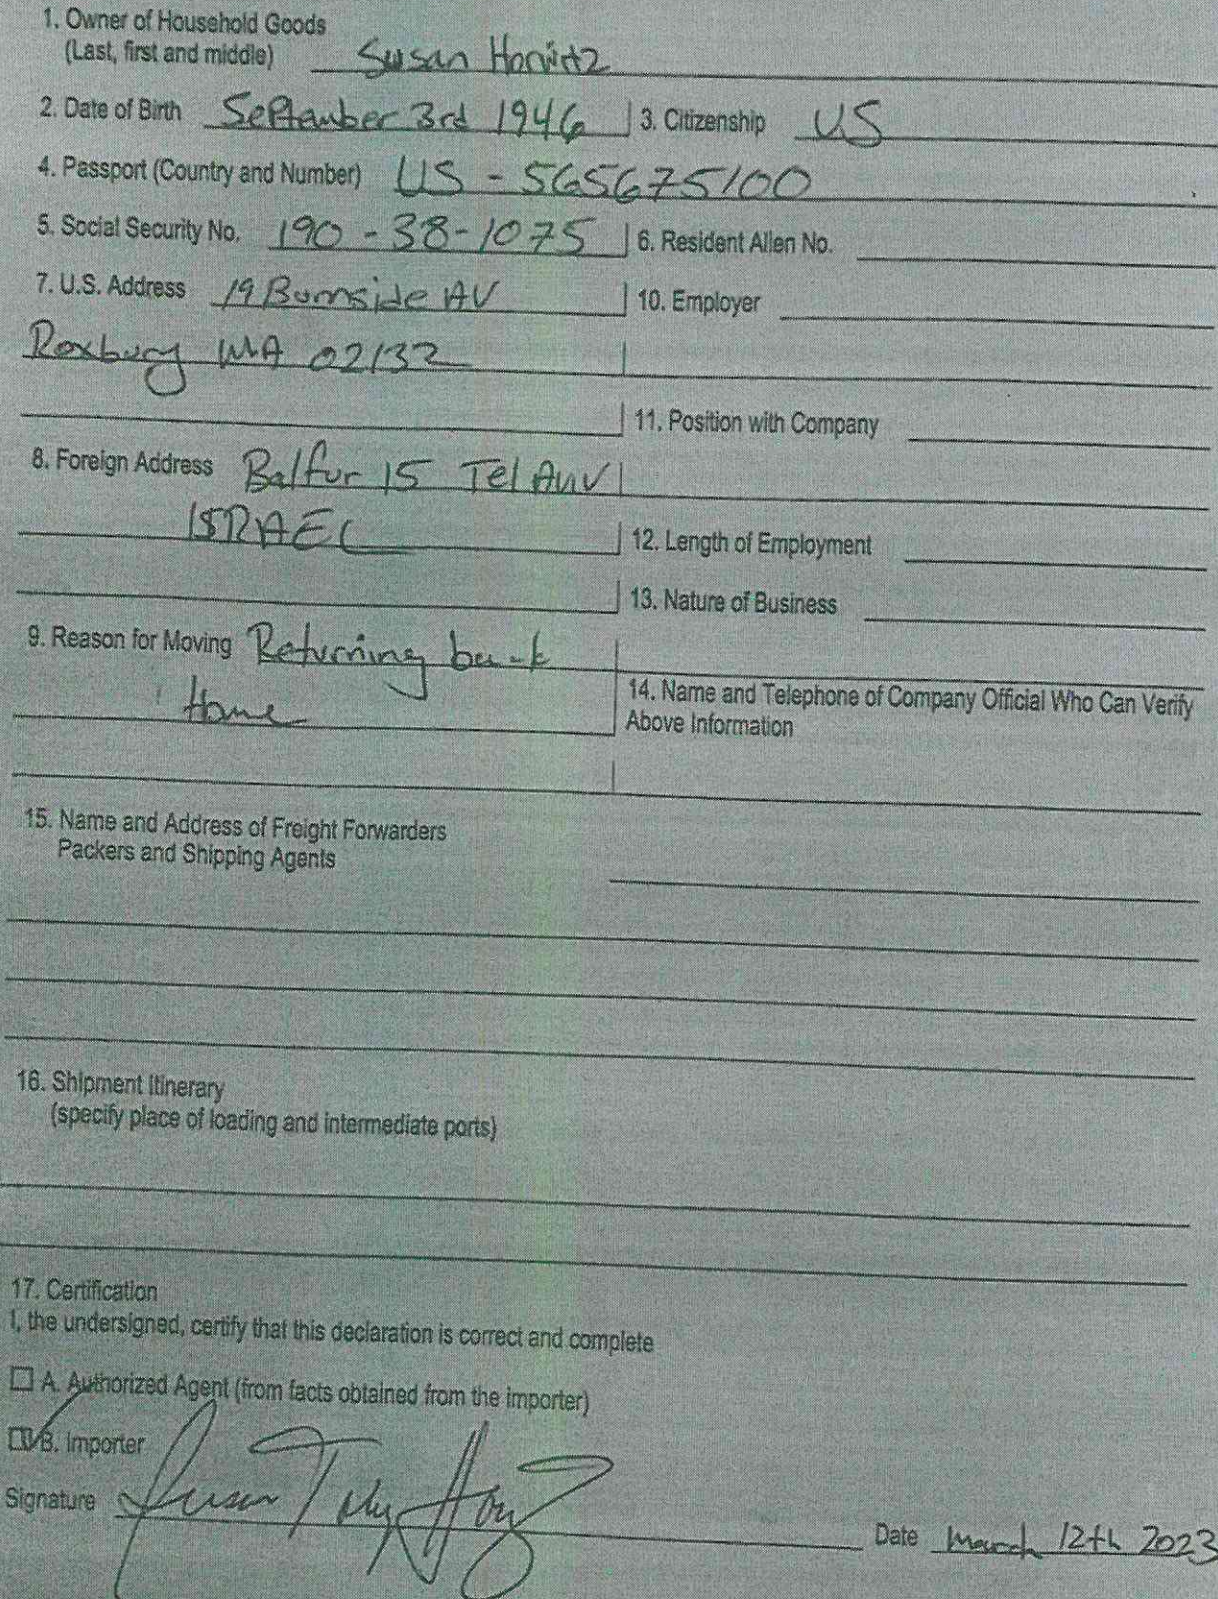 1. Owner of Household Goods
(Last, first and middle) Susan Horwitz
2. Date of Birth September 3rd 1946 3. Citizenship US
4. Passport (Country and Number) US - 565675100
5. Social Security No. 190-38-1075 6. Resident Alien No.
7. U.S. Address 19 Burnside AV 10. Employer
Roxbury MA 02132
11. Position with Company
8. Foreign Address Balfur 15 Tel Aviv
ISRAEL 12. Length of Employment
13. Nature of Business
9. Reason for Moving Returning back
Home
14. Name and Telephone of Company Official Who Can Verify
Above Information
15. Name and Address of Freight Forwarders
Packers and Shipping Agents
16. Shipment Itinerary
(specify place of loading and intermediate ports)
17. Certification
I, the undersigned, certify that this declaration is correct and complete
A. Authorized Agent (from facts obtained from the importer)
B. Importer
Signature Susan
Date March 12th 2023